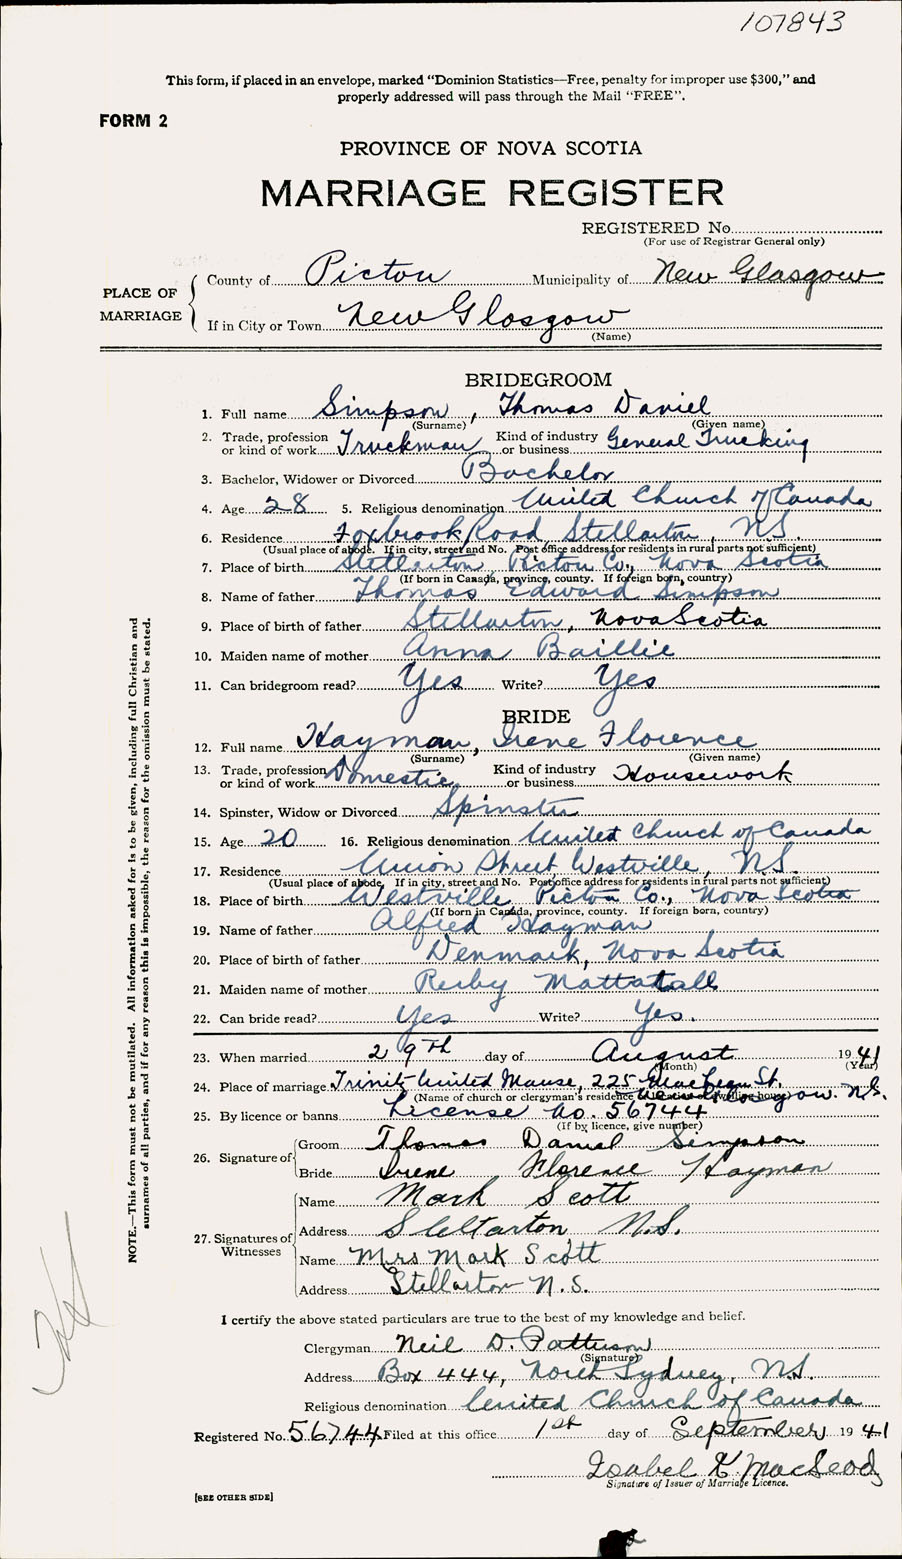 107843
This form, if placed in an envelope, marked "Dominion Statistics—Free, penalty for improper use $300," and
properly addressed will pass through the Mail "FREE".
FORM 2
PROVINCE OF NOVA SCOTIA
MARRIAGE REGISTER
REGISTERED No.
(For use of Registrar General only)
PLACE OF MARRIAGE
County of Pictou Municipality of New Glasgow
If in City or Town New Glasgow
(Name)
BRIDEGROOM
1. Full name Simpson, Thomas Daniel
(Surname) (Given name)
2. Trade, profession or kind of work Truckman Kind of industry or business General Trucking
3. Bachelor, Widower or Divorced Bachelor
4. Age 28 5. Religious denomination United Church of Canada
6. Residence Foxbrook Road Stellarton, N.S.
(Usual place of abode. If in city, street and No. Post office address for residents in rural parts not sufficient)
7. Place of birth Stellarton, Pictou Co., Nova Scotia
(If born in Canada, province, county. If foreign born, country)
8. Name of father Thomas Edward Simpson
9. Place of birth of father Stellarton, Nova Scotia
10. Maiden name of mother Anna Baillie
11. Can bridegroom read? Yes Write? Yes
BRIDE
12. Full name Hayman, Irene Florence
(Surname) (Given name)
13. Trade, profession or kind of work Domestic Kind of industry or business Housework
14. Spinster, Widow or Divorced Spinster
15. Age 20 16. Religious denomination United Church of Canada
17. Residence Union Street Westville, N.S.
(Usual place of abode. If in city, street and No. Post office address for residents in rural parts not sufficient)
18. Place of birth Westville, Pictou Co., Nova Scotia
(If born in Canada, province, county. If foreign born, country)
19. Name of father Alfred Hayman
20. Place of birth of father Denmark, Nova Scotia
21. Maiden name of mother Mattatall
22. Can bride read? Yes Write? Yes.
23. When married 29th day of August 1941
(Month) (Year)
24. Place of marriage Trinity United Manse, 225 St.
New Glasgow. N.S.
(Name of church or clergyman's residence or dwelling house)
25. By licence or banns License No. 56744
(If by licence, give number)
26. Signature of
Groom Thomas Daniel Simpson
Bride Irene Florence Hayman
27. Signatures of Witnesses
Name Mark Scott
Address Stellarton N.S.
Name Mrs Mark Scott
Address Stellarton N.S.
I certify the above stated particulars are true to the best of my knowledge and belief.
Clergyman Neil D. Patterson
(Signature)
Address Box 444, North Sydney, N.S.
Religious denomination United Church of Canada
Registered No. 56744 Filed at this office 1st day of September 1941
Isabel K MacLeod
Signature of Issuer of Marriage Licence.
[SEE OTHER SIDE]
NOTE.—This form must not be mutilated. All information asked for is to be given, including full Christian and
surnames of all parties, and if for any reason this is impossible, the reason for the omission must be stated.